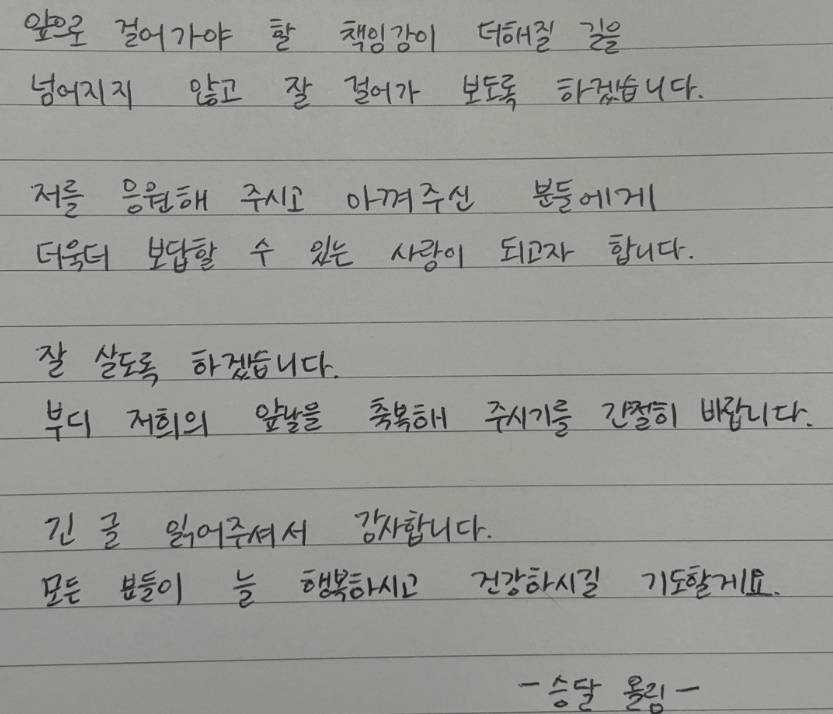 앞으로 걸어가야 할 책임감이 더해질 길을
넘어지지 않고 잘 걸어가 보도록 하겠습니다.
저를 응원해 주시고 아껴주신 분들에게
더욱더 보답할 수 있는 사람이 되고자 합니다.
잘 살도록 하겠습니다.
부디 저희의 앞날을 축복해 주시기를 간절히 바랍니다.
긴 글 읽어주셔서 감사합니다.
모든 분들이 늘 행복하시고 건강하시길 기도할게요.
- 승달 올림 -